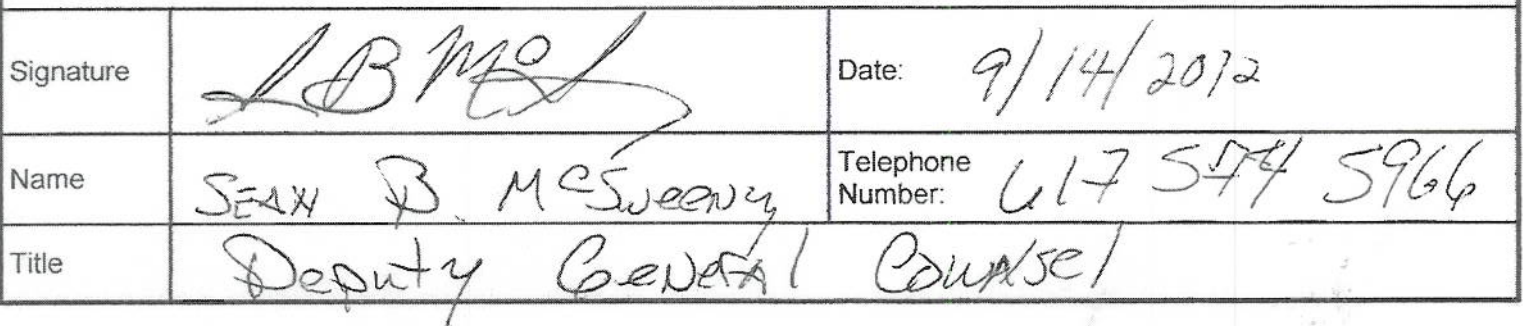 Signature Date: 9/14/2012
Name SEAN B. McSweeny Telephone Number: 617 574 5966
Title Deputy General Counsel